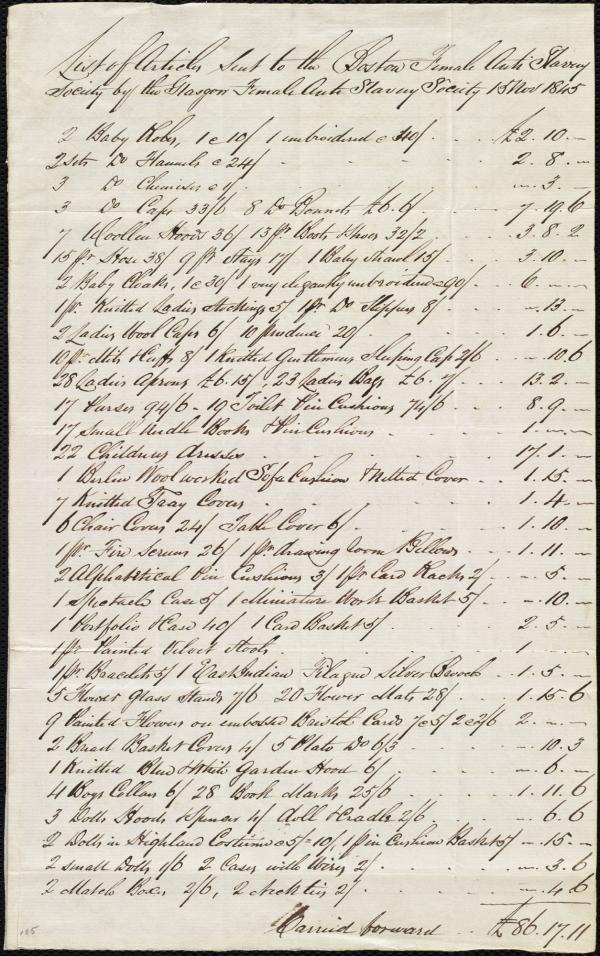 List of Articles Sent to the Boston Female Anti Slavery
Society by the Glasgow Female Anti Slavery Society 15 Nov 1845
2 Baby Robes, 1 @ 10/ 1 embroidered @ 40/ £2.10.–
2 sets Do Flannels @ 24/ 2.8.–
3 Do Chemises @ 1/ –.3.–
3 Do Caps 33/6 8 Do Bonnets £6.6/ 7.19.6
7 Woollen Hoods 36/ 13 pr. Boots & Shoes 32/2 3.8.2
15 pr Hose 38/ 9 pr Stays 17/ 1 Baby Shawl 15/ 3.10.–
2 Baby Cloaks, 1 @ 30/ 1 very elegantly embroidered @ 90/ 6.–.–
1 pr. Knitted Ladies Stockings 5/ 1 pr. Do Slippers 8/ –.13.–
2 Ladies Wool Caps 6/ 10 produce 20/ 1.6.–
10 pr. Mits & Cuffs 8/ 1 Knitted Gentlemans Sleeping Cap 2/6 –.10.6
28 Ladies Aprons £6.15/, 23 Ladies Bags £6.7/ 13.2.–
17 Purses 94/6 – 19 Toilet Pin Cushions 74/6 8.9.–
17 Small Needle Books & Pin Cushions 1.–.–
22 Childrens dresses 17.1.–
1 Berlin Wool worked Sofa Cushion & Netted Cover 1.15.–
7 Knitted Tray Covers 1.4.–
6 Chair Covers 24/ Table Cover 6/ 1.10.–
1 pr. Fire Screens 26/ 1 pr. drawing room Bellows 1.11.–
2 Alphabetical Pin Cushions 3/ 1 pr Card Racks 2/ –.5.–
1 Spectacle Case 5/ 1 Miniature Work Basket 5/ –.10.–
1 Portfolio & Case 40/ 1 Card Basket 5/ 2.5.–
1 pr Painted Velvet Stools 1.–.–
1 pr. Bracelets 5/ 1 East Indian Filagree Silver Brooch 1.5.–
5 Flower Glass Stands 7/6 20 Flower Mats 28/ 1.15.6
9 Painted Flowers on embossed Bristol Cards 7 @ 5/ 2 @ 2/6 2.–.–
2 Bread Basket Covers 4/ 5 Plate Do 6/3 –.10.3
1 Knitted Blue & White Garden Hood 6/ –.6.–
4 Boys Collars 6/ 28 Book Marks 25/6 1.11.6
3 Dolls Hoods & Spencer 4/ doll & Cradle 2/6 –.6.6
2 Dolls in Highland Costume @ 5/ – 10/, 1 Pin Cushion Basket 5/ –.15.–
2 small Dolls 1/6 2 Cases with Wires 2/ –.3.6
2 Match Boxes 2/6, 2 Neck ties 2/ –.4.6
Carried forward £86.17.11